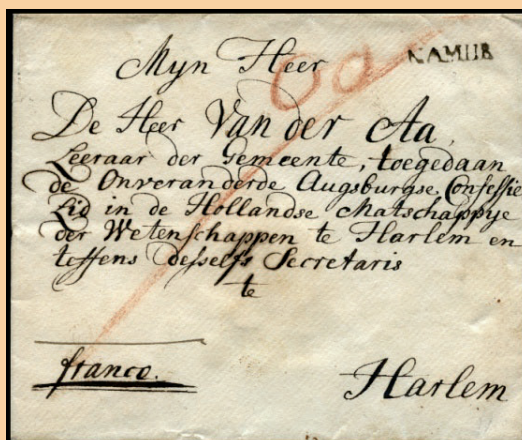 Myn Heer
NAMUR
De Heer Van der Aa,
Leeraar der Gemeente, toegedaan
de Onveranderde Augsburgse Confessie
Lid in de Hollandse Matschappye
der Wetenschappen te Harlem en
teffens desselfs Secretaris
te
franco.
Harlem